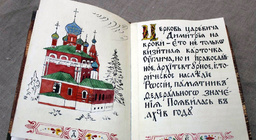 Церковь царевича
Димитрия на
крови – это не только
визитная карточка
Углича, но и православ
ное, архитектурное, исто
рическое наследие
России, памятник
федерального значе
ния. Появилась в
году